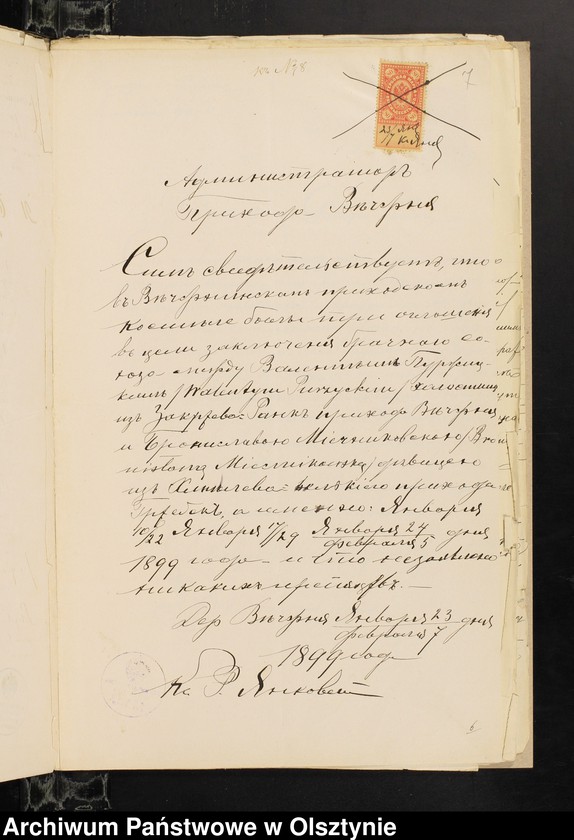 къ № 8
7
23 Янв
Администраторъ
Прихода Вѣчфня
Симъ свидѣтельствуетъ, что
въ Вѣчфнинскомъ приходскомъ
костелѣ были три оглашенія
въ цели заключенія брачнаго со-
юза между Валентымъ Пуржиц-
кимъ /Walentym Purzyckim/ холостымъ
изъ Закржева-Ранкъ прихода Вѣчфня
и Брониславою Мѣчниковскою /Bro
nisławą / дѣвицею
изъ прихода
а именно: Января
10/22 Января 17/29 Января 24 дня
февраля 5
1899 года и что незаявлено
никакихъ препятствъ.
Дер Вѣчфня Января 23 дня
февраля 7
1899 года
Кс Р Янковскій
6
Archiwum Państwowe w Olsztynie